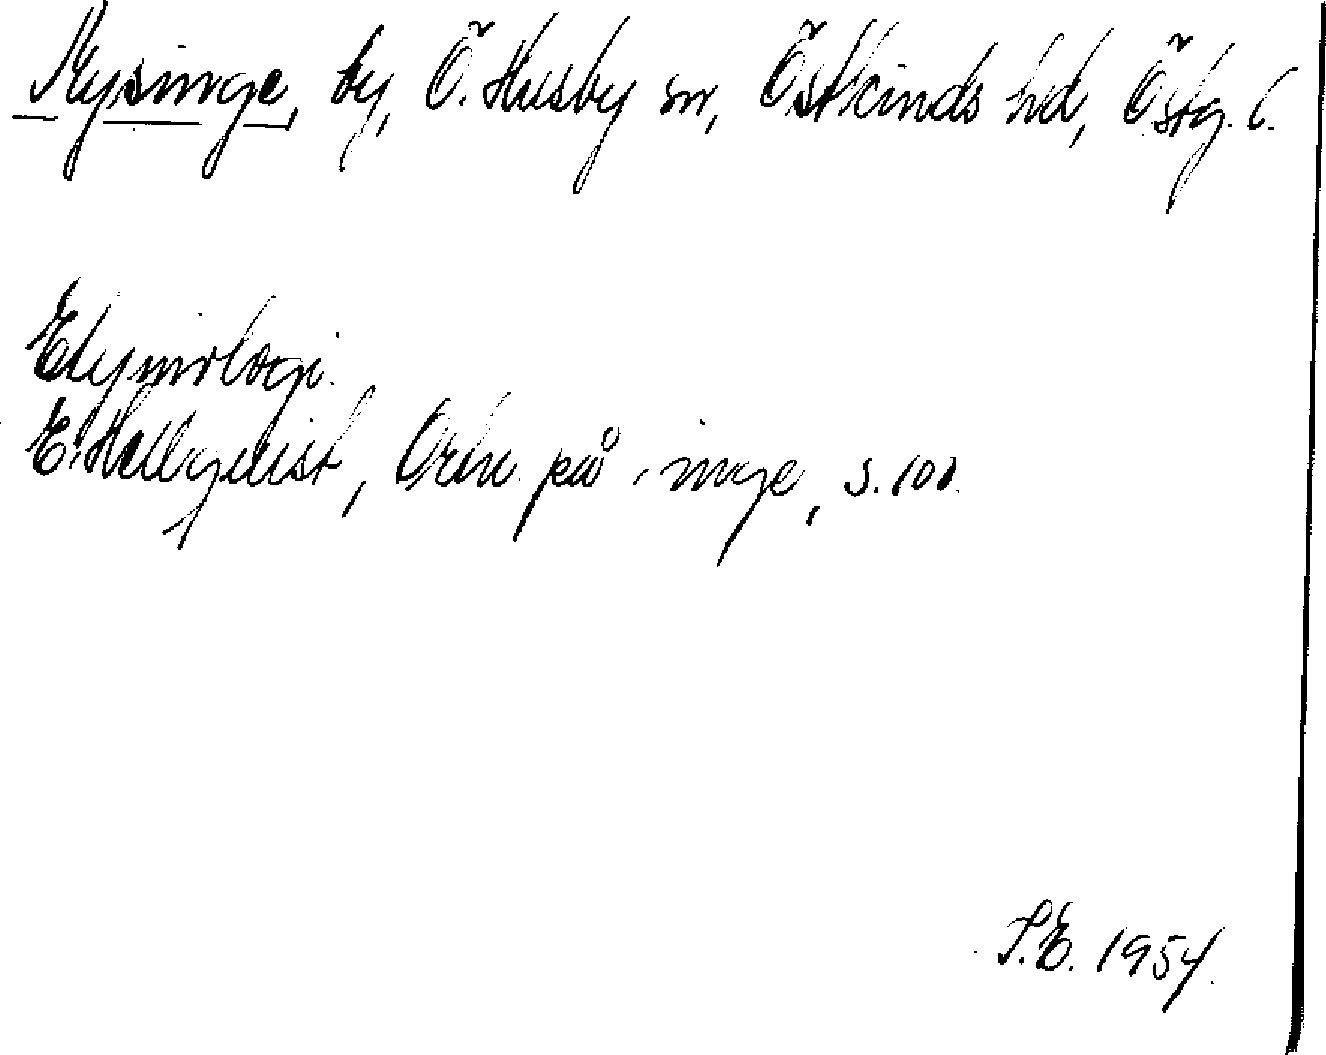 Mysinge, by, Ö. Husby sn, Östkinds hd, Östg. l.
Etymologi.
E. Hellquist, Ortn. på -inge, s. 101.
S.E. 1954.